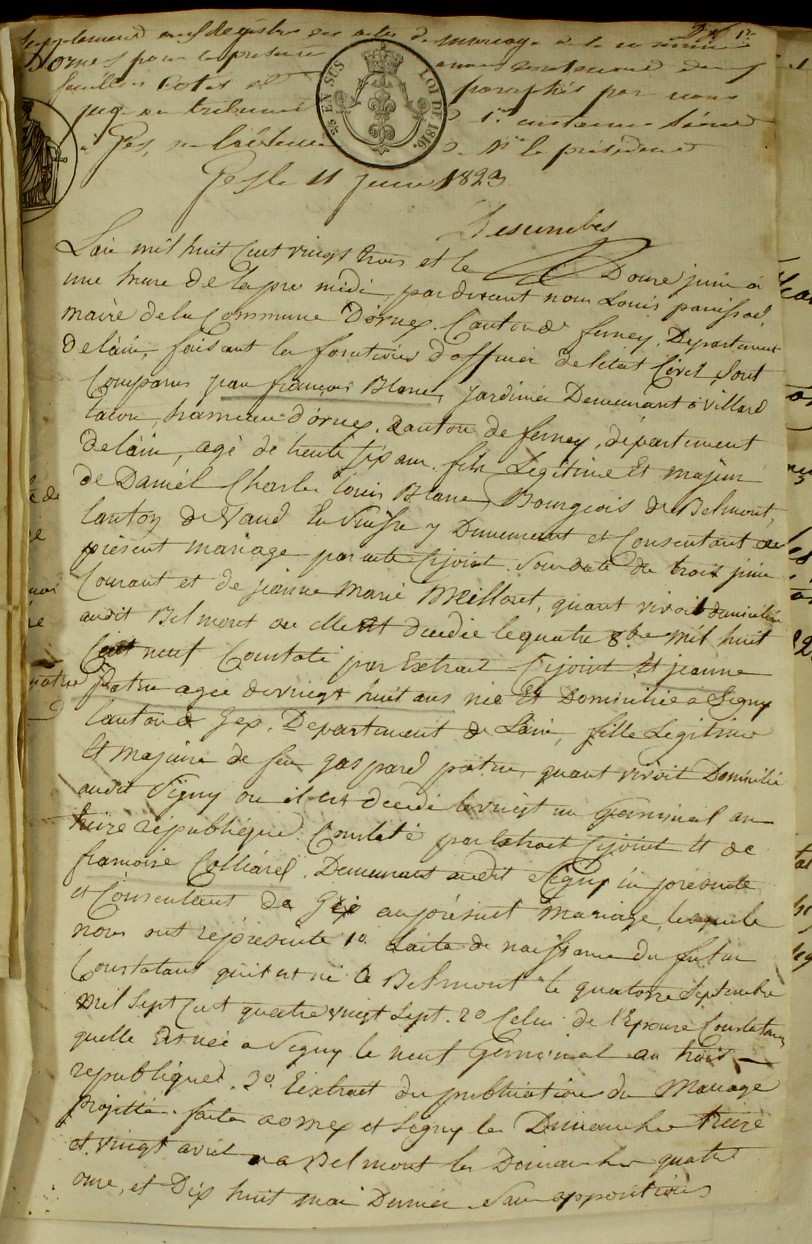 Supplement au Registre des actes de mariage de la commune
d'Ornex pour la présente année contenant deux
feuillets cotés et paraphés par nous
juge au tribunal de 1re instance séant
à Gex, en l'absence de Mr le président
Gex le 11 juin 1823
25 EN SUS LOI DE 1816.
Desombes
L'an mil huit cent vingt trois et le Douze juin à
une heure de la pre midi, pardevant nous Louis panissod
maire de la Commune D'ornex. Canton de ferney, Departement
de l'ain, faisant les fonctions d'officier de l'etat Civil, sont
Comparus jean françois Blanc, jardinier Demeurant à Villard
tacon, hameau d'ornex, Canton de ferney, département
de l'ain, agé de trente six ans, fils Legitime Et majeur
de Daniel Charles Louis Blanc, Bourgeois de Belmont,
Canton de Vaud En Suisse y Demeurant et Consentant au
présent mariage par acte Cijoint Sous date du trois juin
Courant et de jeanne Marie Meillaret, quant vivoit domiciliée
audit Belmont ou elle est decedée le quatre 8bre mil huit
Cent neuf Constaté par Extrait Cijoint Et jeanne
Patru agée de vingt huit ans née Et Domiciliée a Segny
Canton de Gex, Departement de L'ain, fille Legitime
Et majeure de feu gaspard patru, quant vivoit Domicilié
audit Segny ou il est decedé le vingt un Germinal an
treize république Constaté par Extrait Cijoint Et de
françoise Colliard, Demeurant audit Segny ici présente
et Consentant De Gex au présent mariage, lesquels
nous ont réprésenté 1o L'acte de naissance du futur
Constatant qu'il est né à Belmont le quatorze Septembre
mil Sept Cent quatre vingt Sept. 2o Celui de l'Epouse Constatant
quelle Est née a Segny le neuf Germinal an trois
republique. 3o L'extrait des publications du Mariage
Projetté. faite a ornex et Segny les Dimanches treize
et vingt avril et a Belmont les Dimanches quatre
onze, et Dix huit mai Dernier Sans oppositions